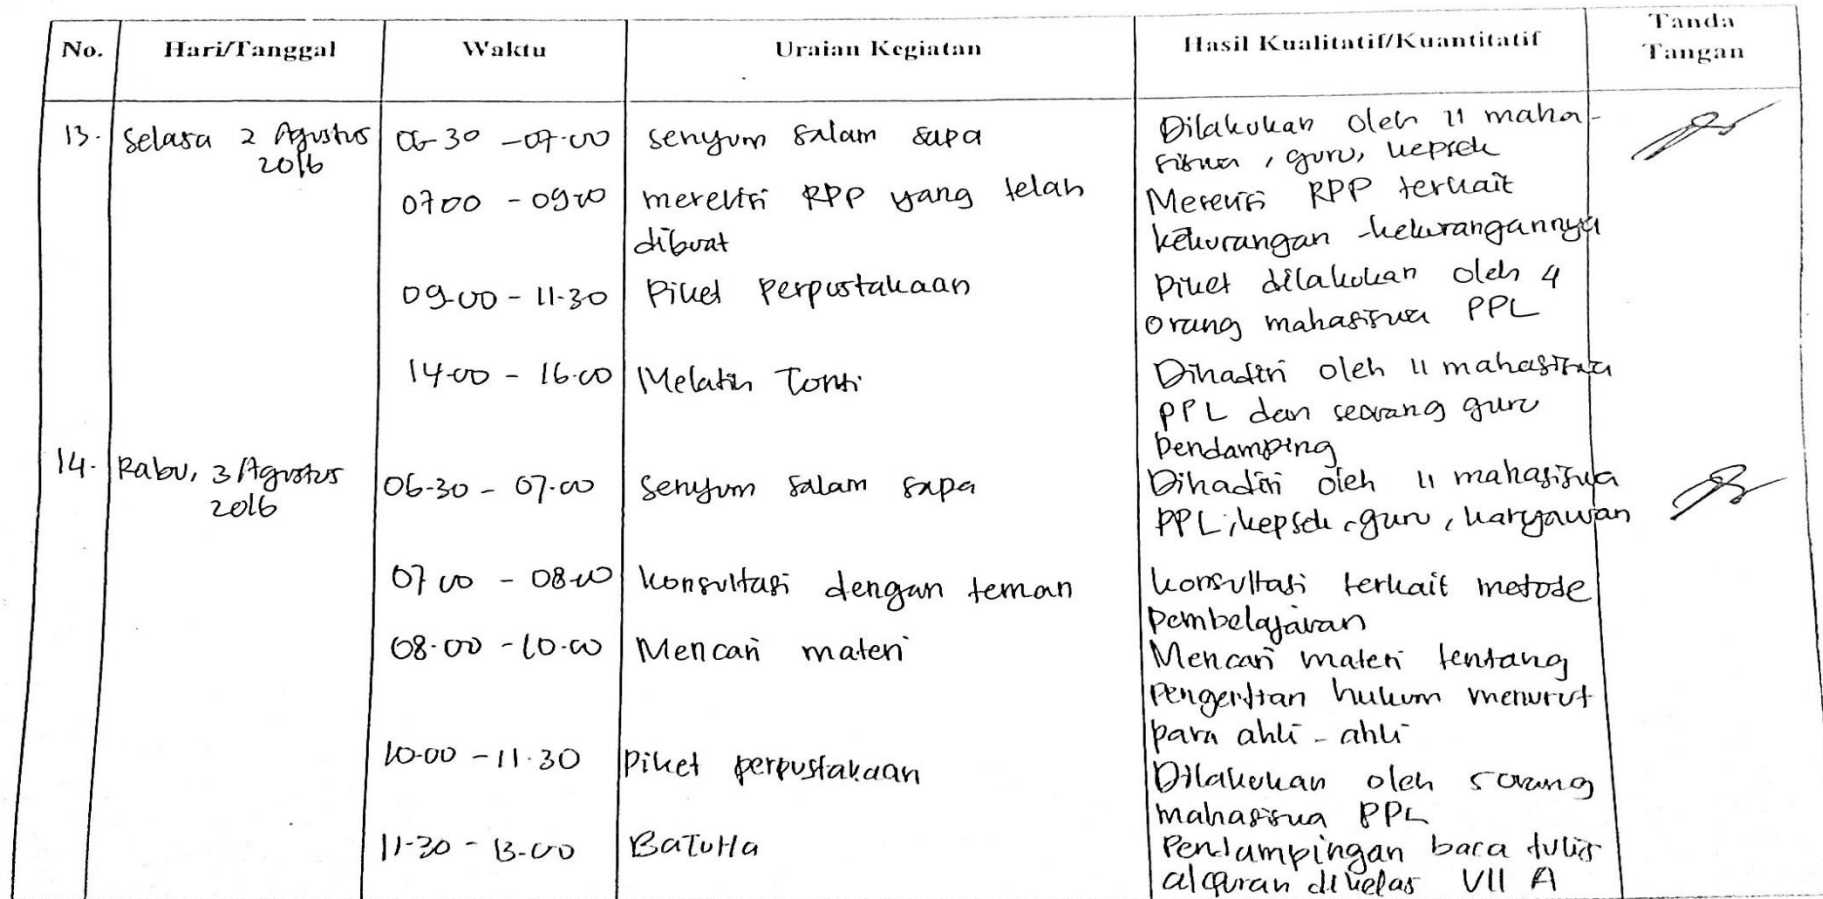 No. Hari/Tanggal Waktu Uraian Kegiatan Hasil Kualitatif/Kuantitatif Tanda
Tangan
13. Selasa 2 Agustus 06-30 - 07.00 senyum salam sapa Dilakukan oleh 11 maha-
2016 siswa, guru, kepsek
0700 - 0900 merevisi RPP yang telah Merevisi RPP terkait
dibuat kekurangan-kekurangannya
09.00 - 11.30 Piket Perpustakaan Piket dilakukan oleh 4
orang mahasiswa PPL
14.00 - 16.00 Melatih Tonti Dihadiri oleh 11 mahasiswa
PPL dan seorang guru
Pendamping
14. Rabu, 3 Agustus 06.30 - 07.00 Senyum salam sapa Dihadiri oleh 11 mahasiswa
2016 PPL, kepsek, guru, karyawan
07 00 - 08.00 konsultasi dengan teman konsultasi terkait metode
Pembelajaran
08.00 - 10.00 Mencari materi Mencari materi tentang
Pengertian hukum menurut
para ahli - ahli
10.00 - 11.30 Piket perpustakaan Dilakukan oleh 5 orang
mahasiswa PPL
11.30 - 13.00 BaTuHa Pendampingan baca tulis
alquran di kelas VII A